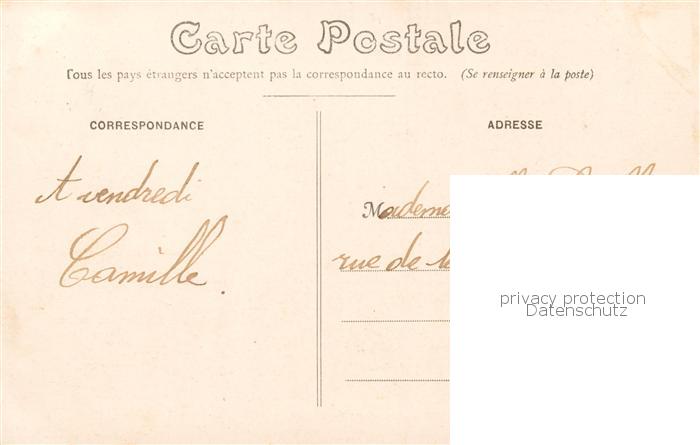 Carte Postale
Tous les pays étrangers n'acceptent pas la correspondance au recto. (Se renseigner à la poste)
CORRESPONDANCE
ADRESSE
A vendredi
Camille.
Mademe
rue de
privacy protection
Datenschutz